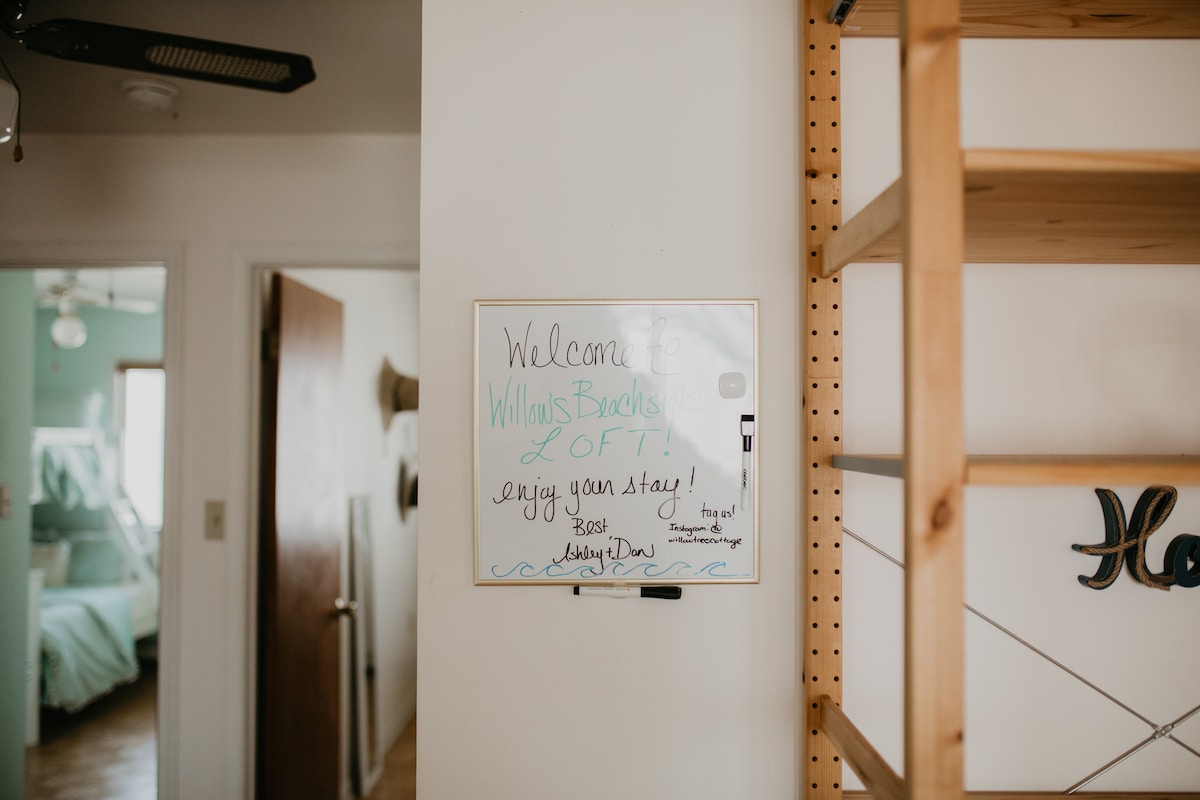 Welcome to
Willow's Beachside
LOFT!
enjoy your stay!
Best
Ashley + Dan
tag us!
Instagram: @
willowtreecottage